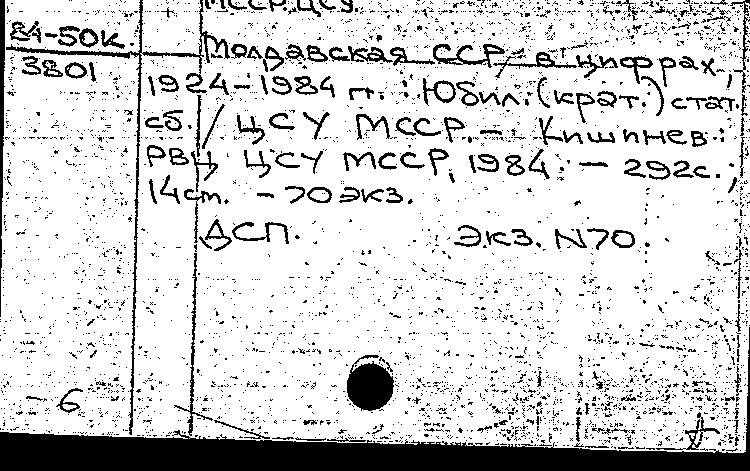 МССР.ЦСУ.
84-50к.
3801
Молдавская ССР в цифрах,
1924-1984 гг. : Юбил. (крат.) стат.
сб. / ЦСУ МССР. - Кишинев :
РВЦ ЦСУ МССР, 1984. - 292с. ;
14см. - 70 экз.
ДСП. Экз. N70.
- 6